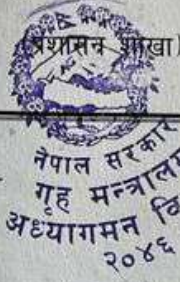 (प्रशासन शाखा)
नेपाल सरकार
गृह मन्त्रालय
अध्यागमन वि
२०४६